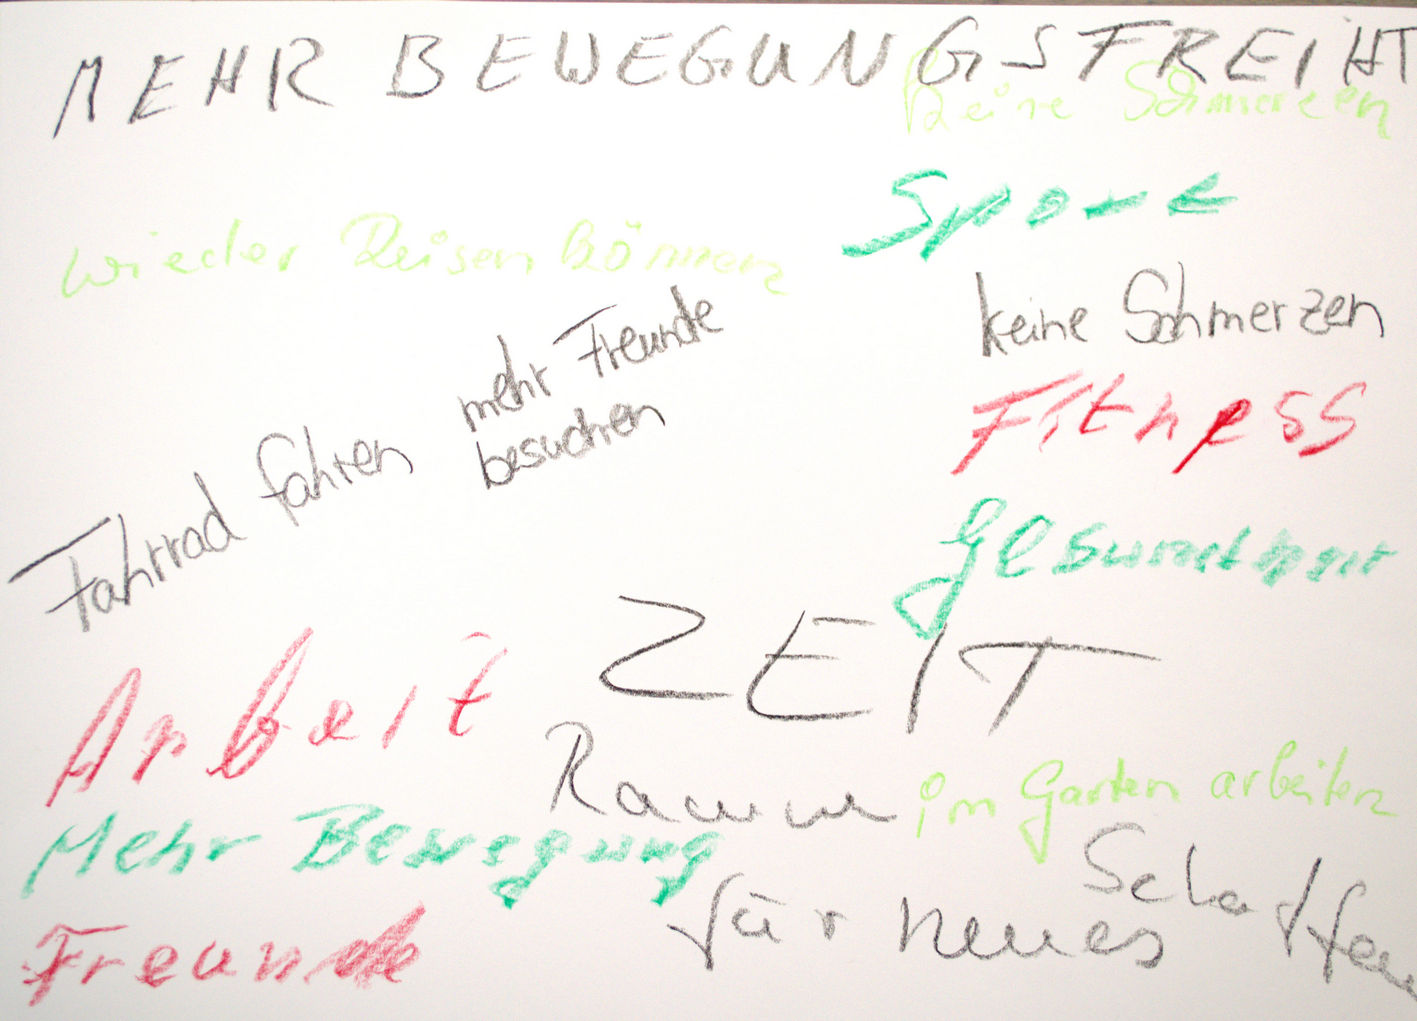 MEHR BEWEGUNGSFREIHT
Keine Schmerzen
Sport
wieder Reisen können
keine Schmerzen
mehr Freunde
besuchen
Fitness
Fahrrad fahren
Gesundheit
ZEIT
Arbeit
Raum
im Garten arbeiten
Mehr Bewegung
für neues
Schaffen
Freunde